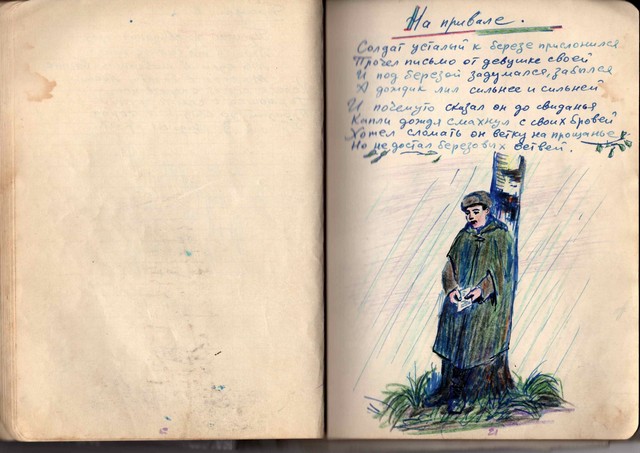 На привале.
Солдат усталый к березе прислонился
Прочел письмо от девушке своей
И под березой задумался, забылся
А дождик лил сильнее и сильней
И почемуто сказал он до свиданья
Капли дождя смахнул с своих бровей
Хотел сломать он ветку на прощанье
Но не достал березовых ветвей.
21